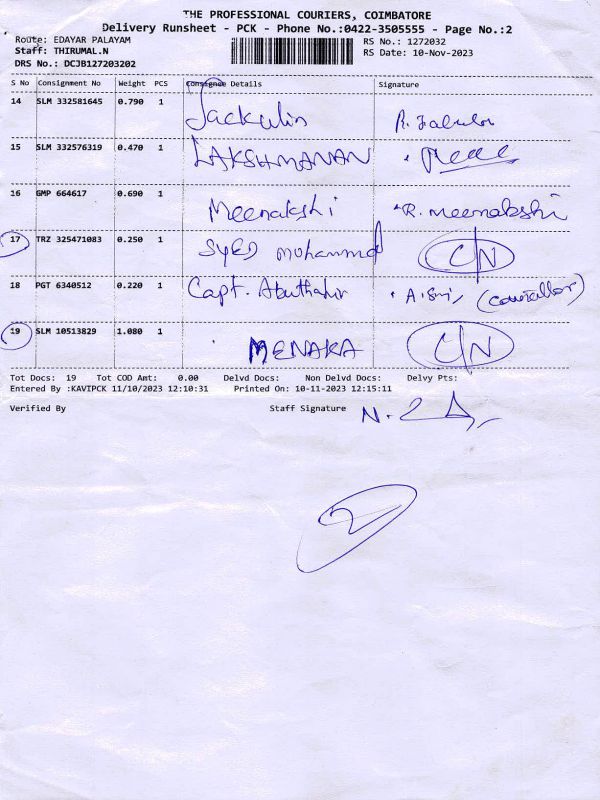 THE PROFESSIONAL COURIERS, COIMBATORE
Delivery Runsheet - PCK - Phone No.:0422-3505555 - Page No.:2
Route: EDAYAR PALAYAM
RS No.: 1272032
Staff: THIRUMAL.N
RS Date: 10-Nov-2023
DRS No.: DCJB127203202
S No Consignment No Weight PCS Consignee Details Signature
14 SLM 332581645 0.790 1 Jackulin
15 SLM 332576319 0.470 1 LAKSHMANAN
16 GMP 664617 0.690 1 Meenakshi R. Meenakshi
17 TRZ 325471083 0.250 1 SYED Mohammed C/N
18 PGT 6340512 0.220 1 Capt. Abuthahir (Councellor)
19 SLM 10513829 1.080 1 MENAKA C/N
Tot Docs: 19 Tot COD Amt: 0.00 Delvd Docs: Non Delvd Docs: Delvy Pts:
Entered By :KAVIPCK 11/10/2023 12:10:31 Printed On: 10-11-2023 12:15:11
Verified By Staff Signature
2